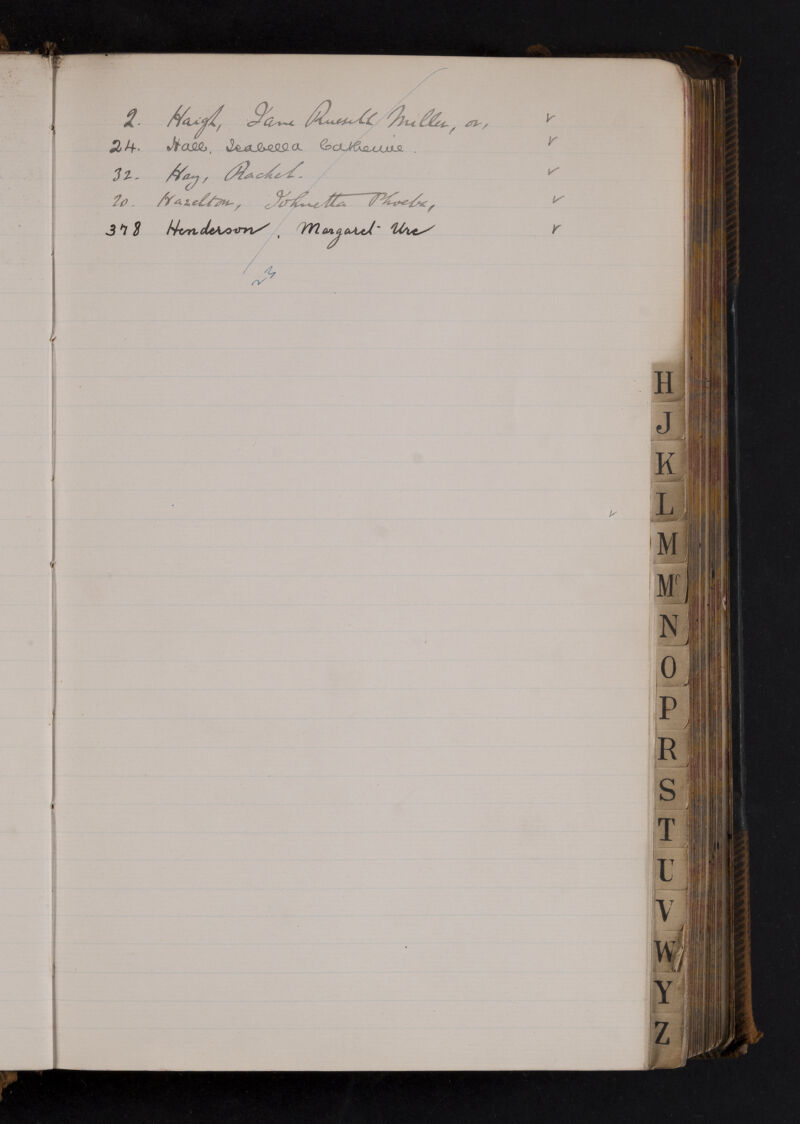 2. Haigh, Jane Russell Miller, or,
24. Hall, Isabella Catherine.
32. Hay, Rachel.
20. Hazelton, Johnetta Phoebe,
378 Henderson, Margaret Ure
H
J
K
L
M
Mc
N
O
P
R
S
T
U
V
W
Y
Z